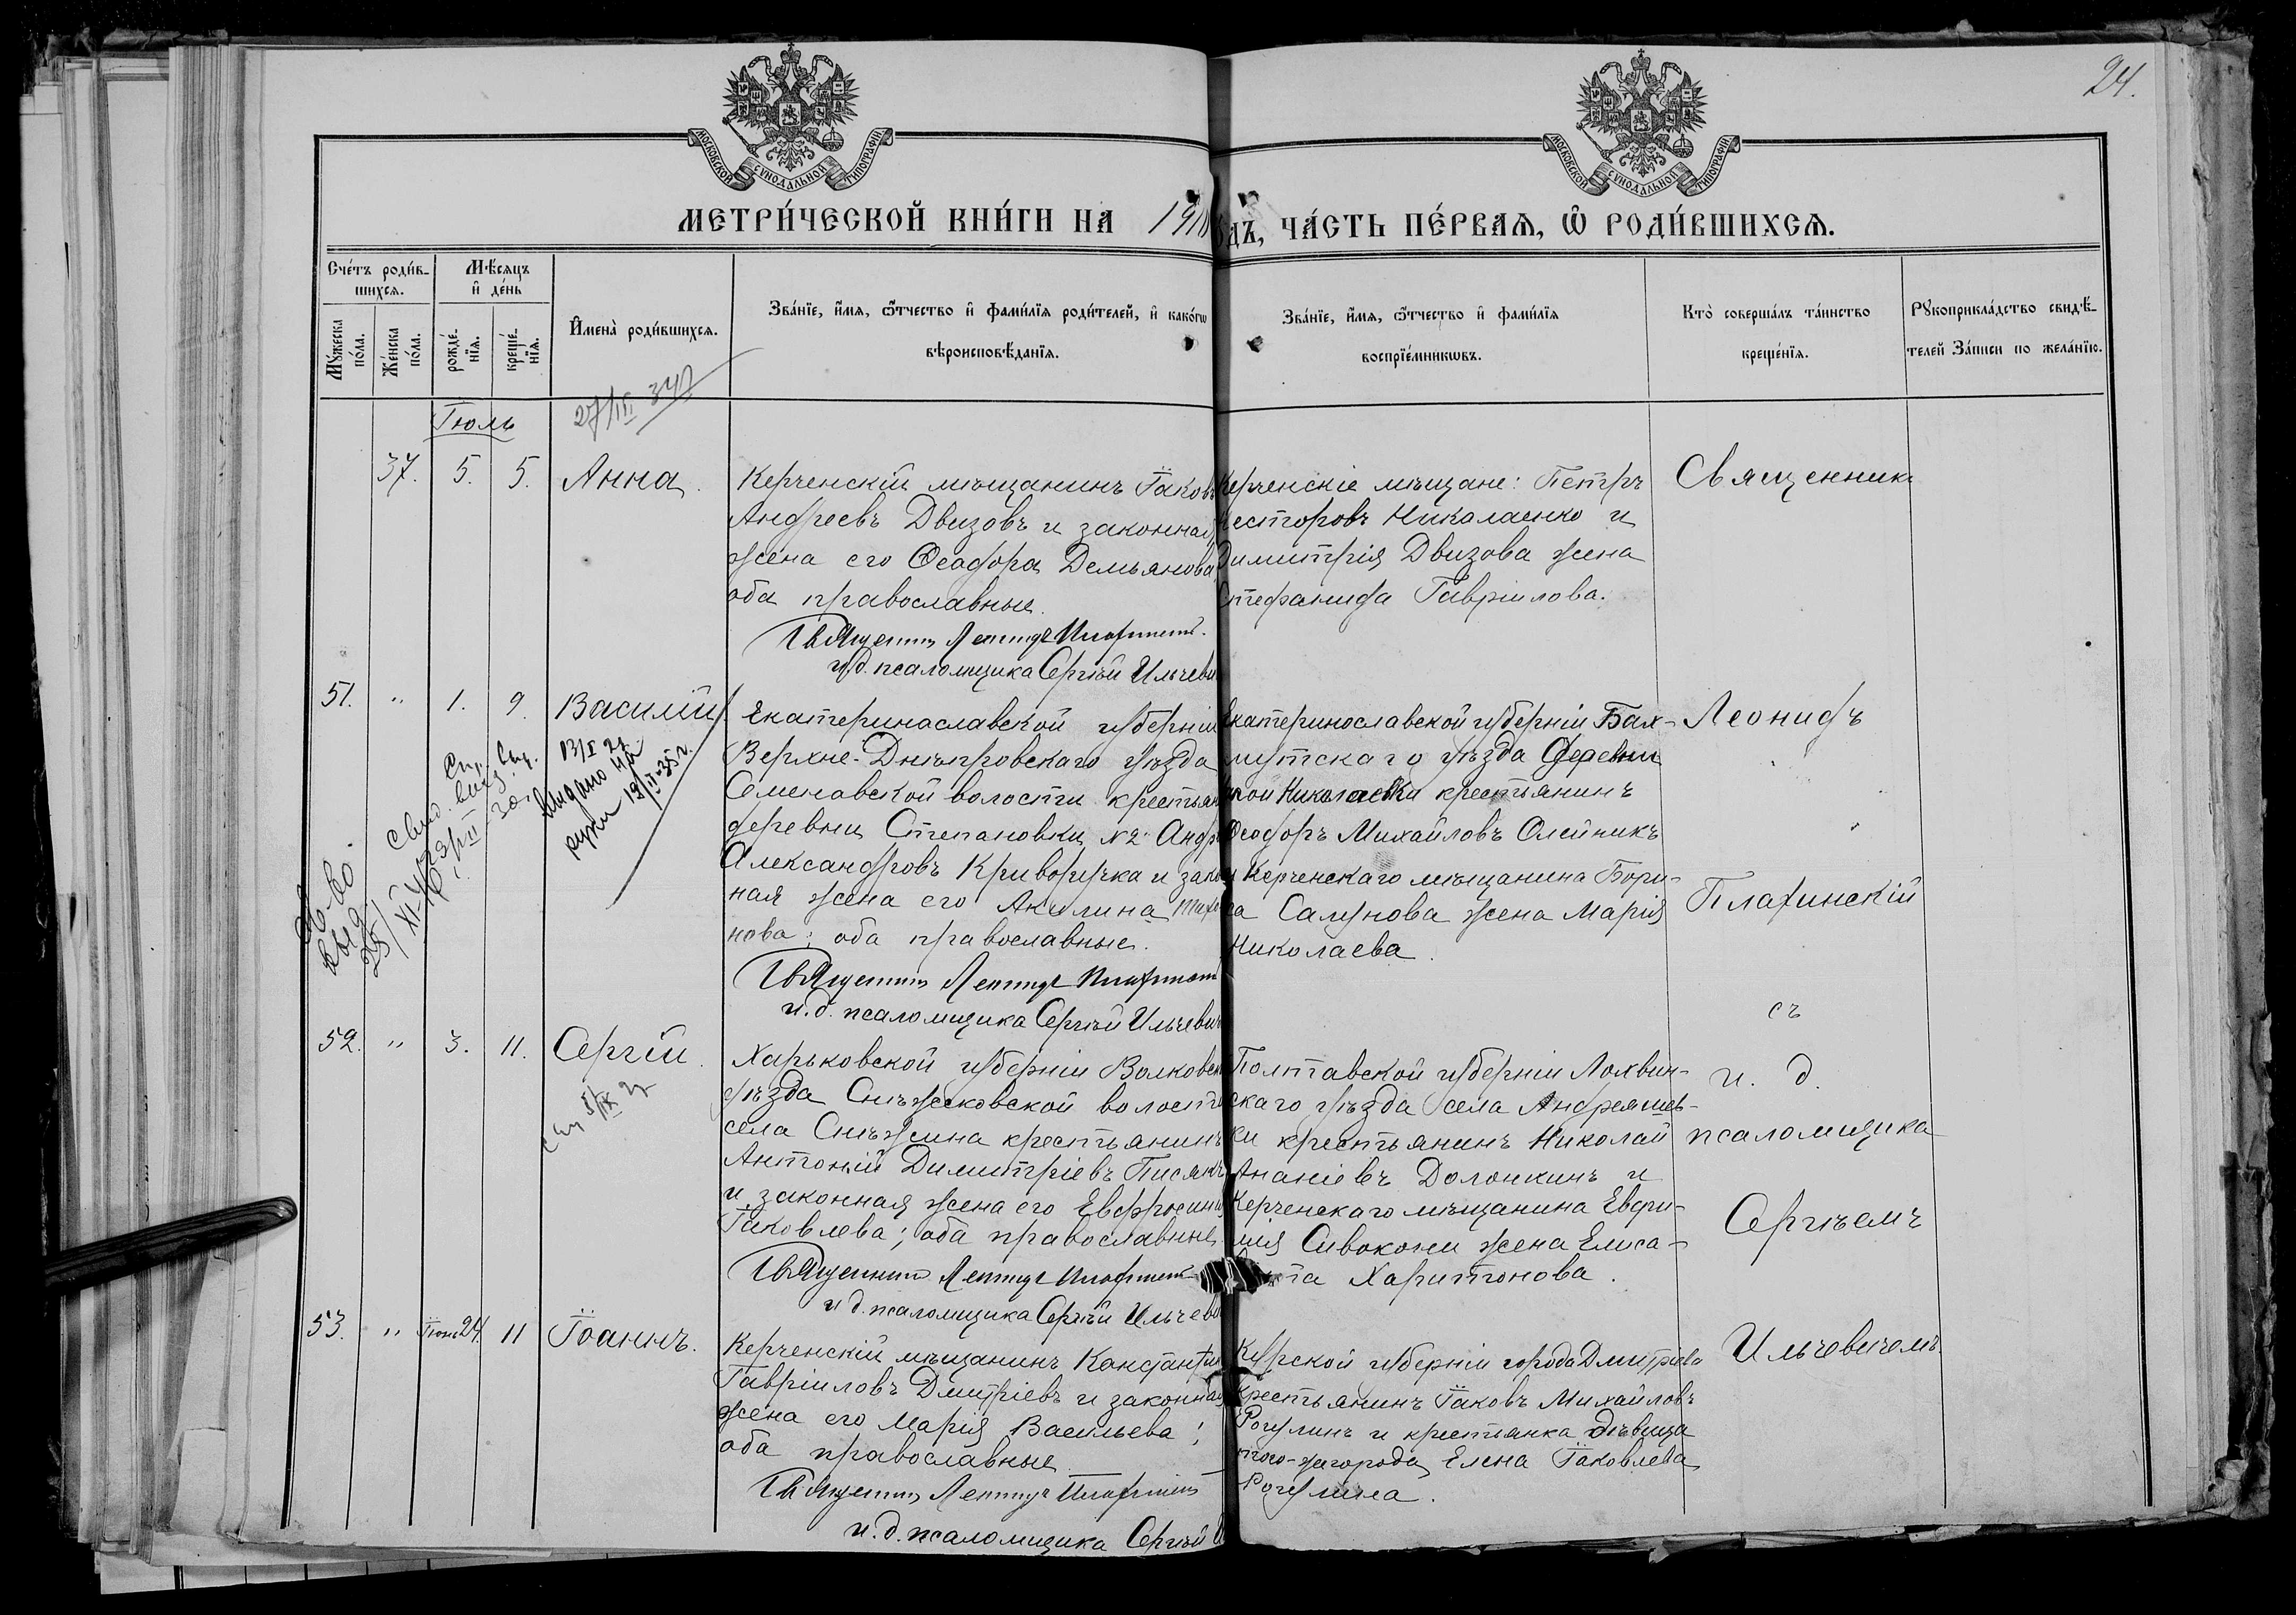 24.
МОСКОВСКОЙ СѴНОДАЛЬНОЙ ТИПОГРАФІИ
МОСКОВСКОЙ СѴНОДАЛЬНОЙ ТИПОГРАФІИ
МЕТРИ́ЧЕСКОЙ КНИ́ГИ НА 1910
ДЪ, ЧА́СТЬ ПЕ́РВАѦ, Ѡ҆ РОДИ́ВШИХСѦ.
Сче́тъ роди́в-
шихсѧ.
Мꙋ́жеска по́ла.
Же́нска по́ла.
Мѣ́сяцъ
и҆ де́нь
рожде́-
нїѧ.
креще́-
нїѧ.
И҆мена̀ роди́вшихсѧ.
Зва́нїе, и҆́мѧ, ѻ҆́тчество и҆ фами́лїѧ роди́телей, и҆ како́гѡ
вѣроисповѣ́данїѧ.
Зва́нїе, и҆́мѧ, ѻ҆́тчество и҆ фами́лїѧ
воспрїе́мникѡвъ.
Кто̀ соверша́лъ та́инство
креще́нїѧ.
Рꙋкоприкла́дство свидѣ́-
телей за́писи по жела́нїю.
Іюль
37. 5. 5. Анна.
Керченскій мѣщанинъ Іаковъ
Андреевъ Двизовъ и законная
жена его Ѳеодора Демьянова
оба православные.
и.д. псаломщика Сергѣй Ильчеви
Керченскіе мѣщане: Петръ
Несторовъ Николаенко и
Димитрія Двизова жена
Стефанида Гавріилова.
Священникъ
51. " 1. 9. Василій
выдано на
руки
Екатеринославской губерніи
Верхне-Днѣпровскаго уѣзда
Семеновской волости крестьян
деревни Степановки №2. Андр
Александровъ Криворучка и закон
ная жена его Акилина Тихо
нова; оба православные.
и.д. псаломщика Сергѣй Ильчевич
Екатеринославской губерніи Бах-
мутскаго уѣзда деревни
Николаевки крестьянинъ
Ѳеодоръ Михайловъ Олейникъ
и Керченскаго мѣщанина Бори-
са Самунова жена Марія
Николаева.
Леонидъ
Плафинскій
съ
52. " 3. 11. Сергій.
Харьковской губерніи Волковск
уѣзда Снѣжковской волости
села Снѣжина крестьянинъ
Антоній Димитріевъ Писякъ
и законная жена его Евфросинія
Іаковлева; оба православные
и.д. псаломщика Сергѣй Ильчеви
Полтавской губерніи Лохвин-
скаго уѣзда села Андреяшев-
ки крестьянинъ Николай
Ананіевъ Долонкинъ и
Керченскаго мѣщанина Евфи-
мія Сивокони жена Елиса-
та Харитонова.
и. д.
псаломщика
Сергѣемъ
53. " Іюнь 24. 11 Іоаннъ.
Керченскій мѣщанинъ Константин
Гавріиловъ Дмитріевъ и законная
жена его Марія Васильева;
оба православные
и.д. псаломщика Сергѣй
Курской губерніи города Дмитріева
крестьянинъ Іаковъ Михайловъ
Рогулинъ и крестьянка дѣвица
того-же города Елена Іаковлева
Рогулина.
Ильчевичемъ.